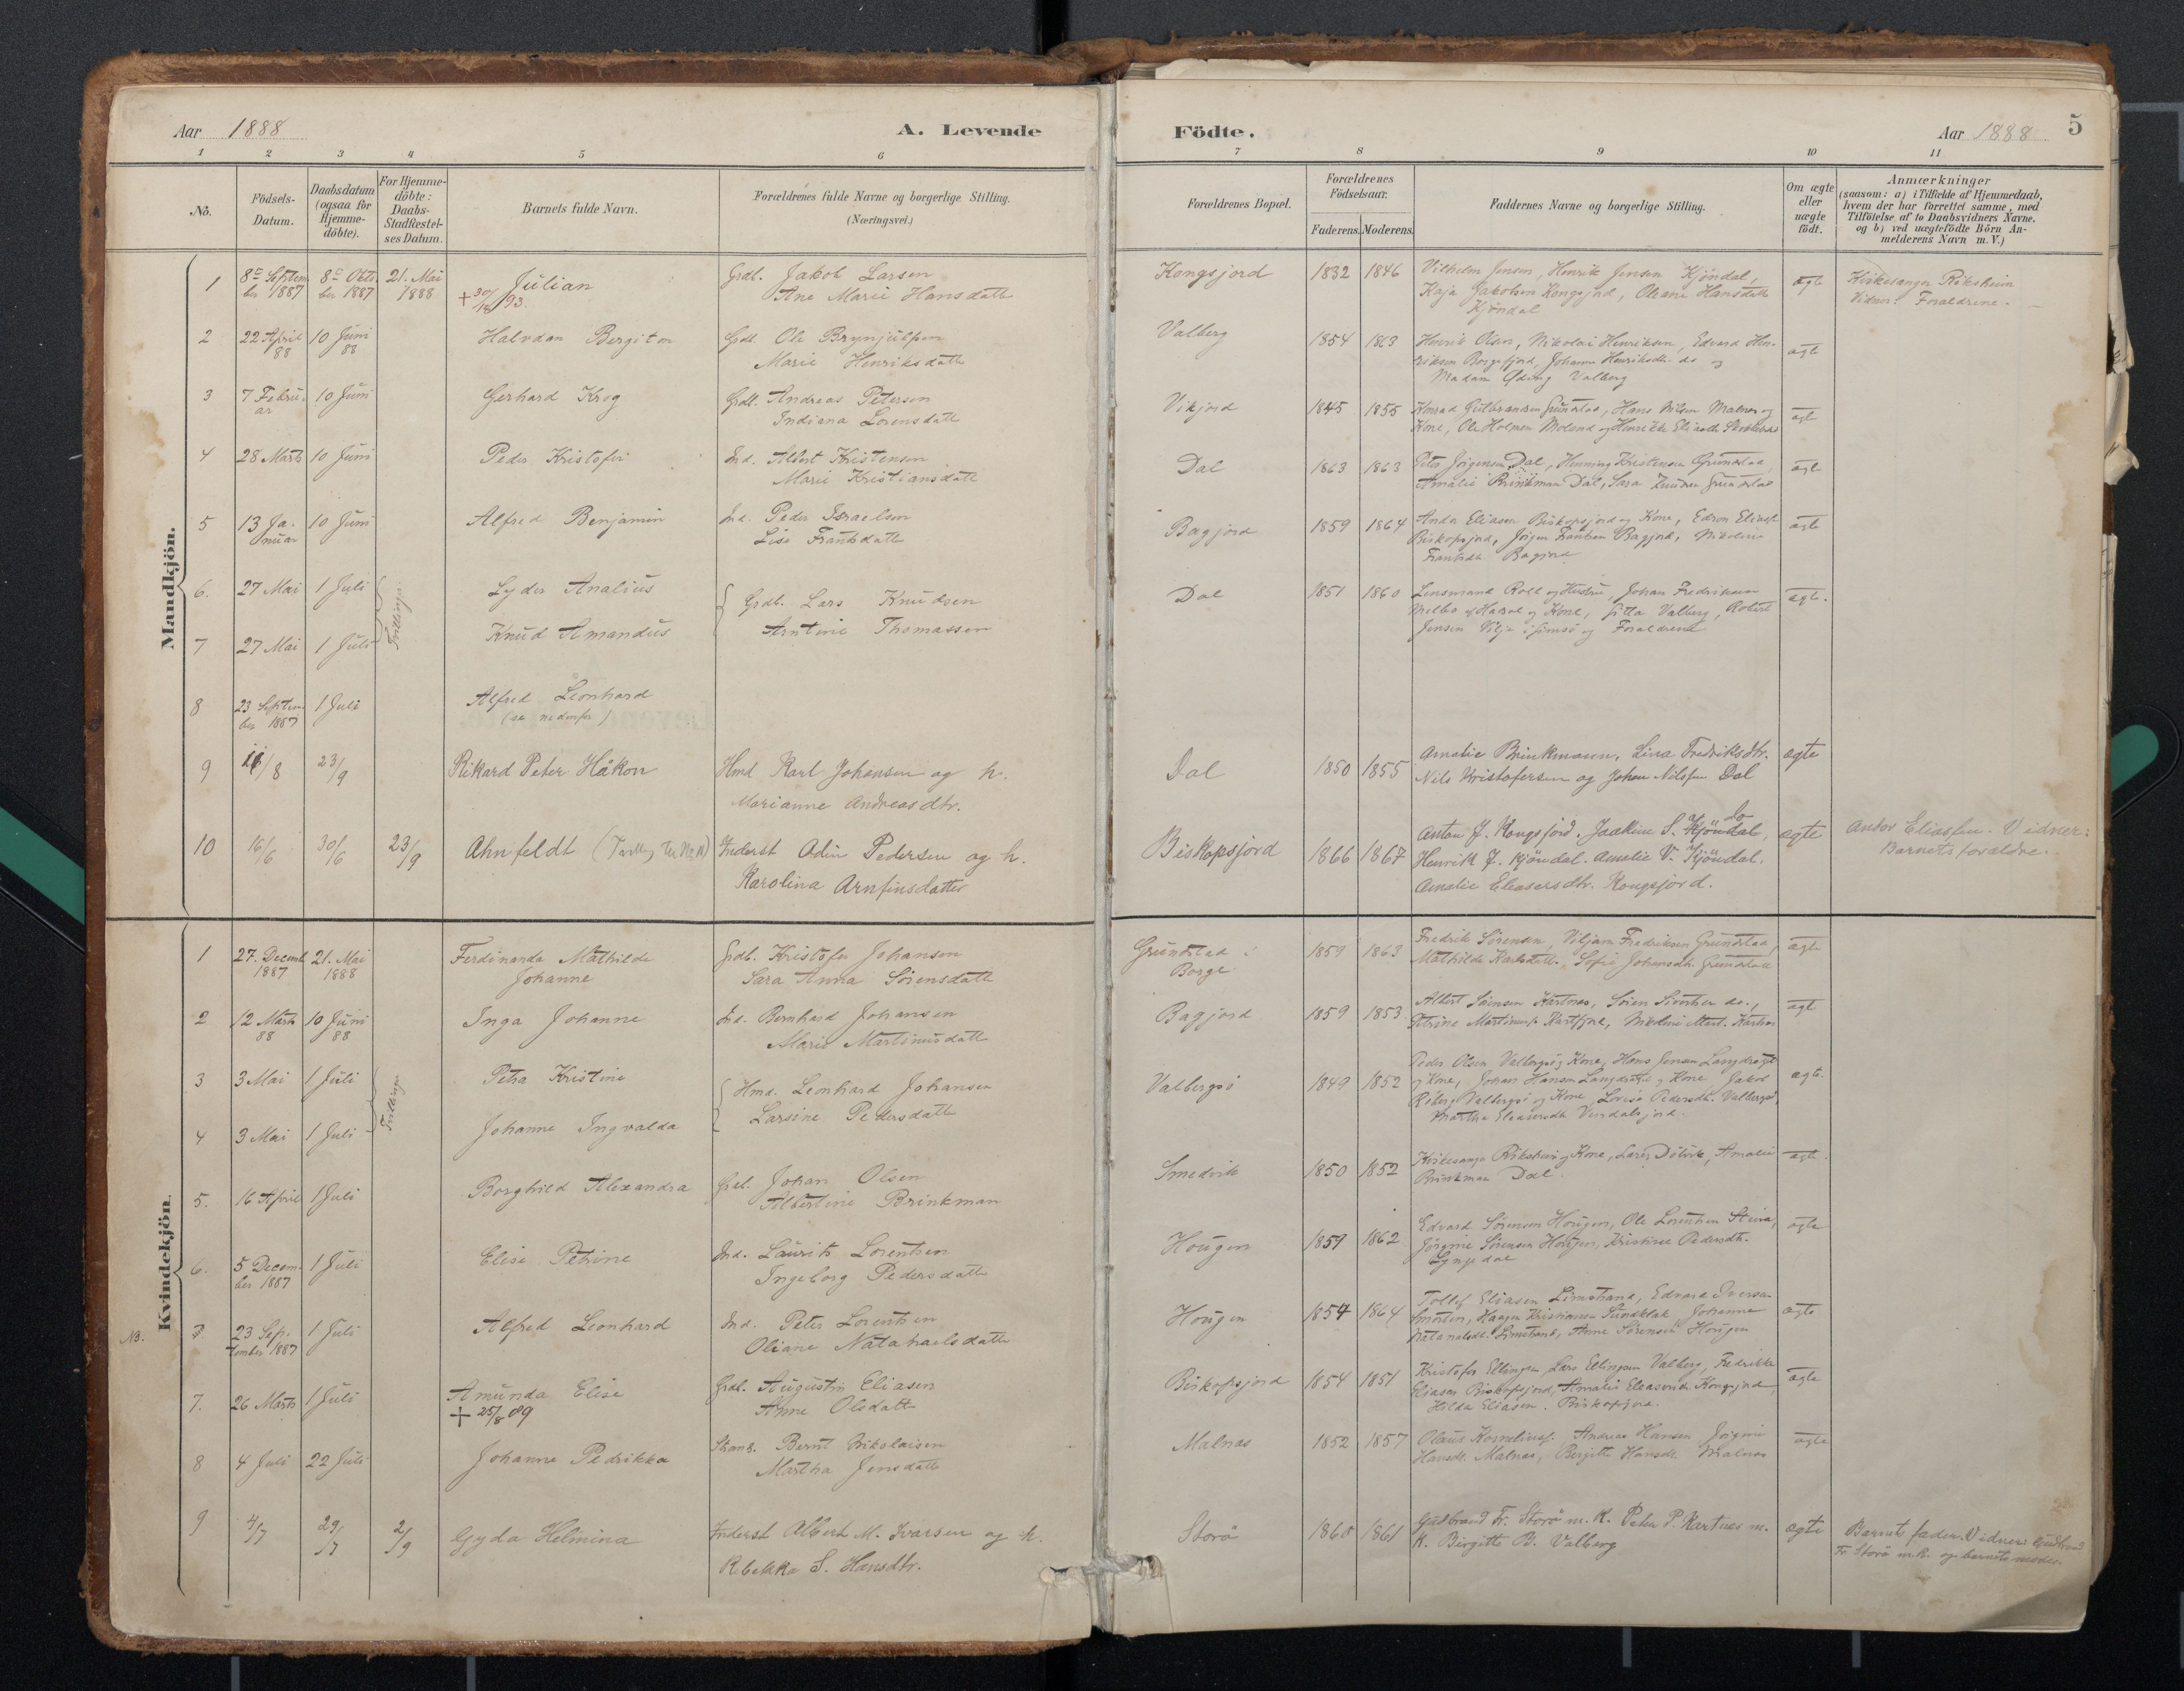 Aar 1888
A. Levende
Födte.
Aar 1888
5
1 2 3 4 5 6 7 8 9 10 11
No.
Födsels-
Datum.
Daabsdatum
(ogsaa for
Hjemme-
döbte).
For Hjemme-
döbte:
Daabs-
Stadfæstel-
ses Datum.
Barnets fulde Navn.
Forældrenes fulde Navne og borgerlige Stilling.
(Næringsvei.)
Forældrenes Bopæl.
Forældrenes
Födselsaar.
Faderens. Moderens.
Faddernes Navne og borgerlige Stilling.
Om ægte
eller
uægte
födt.
Anmærkninger
(saasom: a) i Tilfælde af Hjemmedaab,
hvem der har forrettet samme, med
Tilföielse af to Daabsvidners Navne.
og b) ved uægtefödte Börn An-
melderens Navn m. V.)
Mandkjön.
1 8de Septem 8de Okto 21. Mai Julian Grdb. Jakob Larsen Kongsjord 1832 1846 Vilhelm Jensen, Henrik Jensen Kjöndal, ægte Kirkesanger Riksheim
ber 1887 ber 1887 1888 + 30/18 93. Ane Marie Hansdatter Kaja Jakobsen Kongsjord, Oleane Hansdatter Vidner: Forældrene.
Kjöndal
2 22 April 10 Juni Halvdan Bergiton Grdb. Ole Brynjulfsen Valberg 1854 1863 Henrik Olsen, Nikolai Henriksen, Edvard Hen- ægte
88 88 Marie Henriksdatter riksen Borgefjord, Johanna Henriksdtr. do og
Madam Qding Valberg
3 7 Febru- 10 Juni Gerhard Krog Grdb. Andreas Petersen Vikjord 1845 1855 Konrad Gulbrandsen Grundstad, Hans Nilsen Malnes og ægte
ar Indiana Lorensdatter Kone, Ole Holmen Moland og Henrikke
4 28 Marts 10 Juni Peder Kristofer Ind. Albert Kristensen Dal 1863 1863 Peter Jörgensen Dal, Henning Kristensen Grundstad, ægte
Marie Kristiansdatter Amalie Brinkman Dal, Sara Grundstad
5 13 Ja- 10 Juni Alfred Benjamin Ind. Peder Israelsen Bagjord 1859 1864 Andor Eliasen Biskopsjord og Kone, Edvon Eliasen ægte
nuar Lise Frantsdatter Biskopsjord, Jörgen Frantsen Bagjord, Nikoline
Frantsdtr Bagjord
6. 27 Mai 1 Juli Tvillinge Lyder Analius Grdb. Lars Knudsen Dal 1851 1860 Lensmand Roll og Hustru, Johan Fredriksen ægte.
Melbo af Hadsel og Kone, Valberg, Robert
7 27 Mai 1 Juli Knud Amandus Arntine Thomassen Jensen Vilje i Gimsö og Forældrene
8 23 Septem- 1 Juli Alfred Leonhard
ber 1887 (se nedenfor)
9 11/8 23/9 Rikard Peter Håkon Hmd Karl Johansen og h. Dal 1850 1855 Amalie Brinkmann, Lina Fredriksdtr. ægte
Marianne Andreasdtr. Nils Kristofersen og Johan Nilssen Dal
10 16/6 30/6 23/9 Ahnfeldt Inderst Odin Pedersen og h. Biskopsjord 1866 1867 Anton J. Kongsjord. Joakim S. Kjöndal do, ægte Andor Eliassen. Vidner:
Karolina Arnfinsdatter Henrik J. Kjöndal. Amalie V. Kjöndal. Barnets forældre.
Amalie Eleasersdtr. Kongsjord.
Kvindekjön.
1 27. Decemb 21. Mai Ferdinanda Mathilde Grdb. Kristofer Johansen Grundstad i 1859 1863 Fredrik Sörensen, Viljam Fredriksen Grundstad, ægte
1887 1888 Johanne Sara Anna Sörensdatter Borge Mathilde Karlsdatter. Sofie Johansdtr. Grundstad
2 12 Marts 10 Juni Inga Johanne Ind. Bernhard Johansen Bagjord 1859 1853 Albert Sörensen Kartnes, Sören Sivertsen do., ægte
88 88 Marie Martinusdatter Petrine Martinus. Kartnes, Nikoline Mart. Kartnes
3 3 Mai 1 Juli Tvillinge Petra Kristine Hmd. Leonhard Johansen Valbergsö 1849 1852 Peder Olsen Valbergsö og Kone, Hans Jensen Langdraget ægte.
og Kone, Johan Hansen Langdraget og Kone, Jakob
4 3 Mai 1 Juli Johanne Ingvalda Larsine Pedersdatter Röberg Valbergsö og Kone Lovise Pedersdtr. Valbergsö,
Martha Eleasersdtr Vendalsjord.
5. 16 April 1 Juli Borghild Alexandra Grdb. Johan Olsen Smedvik 1850 1852 Kirkesanger Riksheim og Kone, Lars Dölvik, Amalie ægte.
Albertine Brinkman Brinkman Dal.
6. 5 Decem- 1 Juli Elise Petrine Ind. Laurits Lorentsen Hougen 1859 1862 Edvard Sörensen Hougen, Ole Lorentsen Steira, ægte
ber 1887 Ingeborg Pedersdatter Jörgine Sörensen Hougen, Kristine Pedersdtr.
Lyngedal
NB. 7 23 Sep- 1 Juli Alfred Leonhard Ind. Peter Lorentsen Hougen 1854 1864 Tollef Eliasen Limstrand, Edvard Iversen ægte
tember 1887 Oliane Natanaelsdatter Smorten, Haagen Kristiansen Sundklak, Johanne
Natanaelsdtr. Limstrand, Anne Sörensen Hougen
7. 26 Marts 1 Juli Amunda Elise Grdb. Augustin Eliasen Biskopsjord 1854 1851 Kristofer Ellingsen, Lars Ellingsen Valberg, Fredrikke ægte
+ 25/8 09 Anne Olsdatter Eliasen Biskopsjord, Amalie Eleasersdtr. Kongsjord,
Hilda Eliasen. Biskopsjord.
8 4 Juli 22 Juli Johanne Pedrikka Strand. Bernt Nikolaisen Malnes 1852 1857 Olaus Korneliusf. Andreas Hansen Jörgine ægte
Martha Jensdatter Hansdtr. Malnes, Bergitte Hansdtr. Malnes
9 4/7 29/7 2/9 Gyda Helmina Inderst Albert M. Ivarsen og h. Storö 1860 1861 Gulbrand Fr. Storö m. K. Peter P. Kartnes m. ægte Barnets fader. Vidner: Gudbrand
Rebekka S. Hansdtr. K. Birgitte B. Valberg Fr. Storö m.k. og barnets moder.